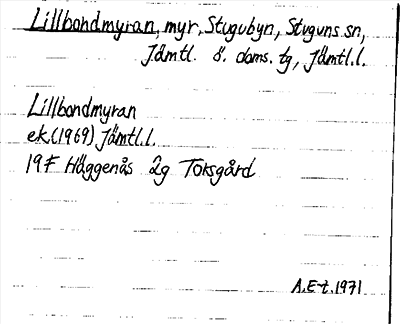 Lillbondmyran, myr, Stugubyn, Stuguns sn,
Jämtl. ö. doms. tg, Jämtl.l.
Lillbondmyran
ek.(1969) Jämtl.l.
19F Häggenås 2g Toksgård
A.E-t.1971